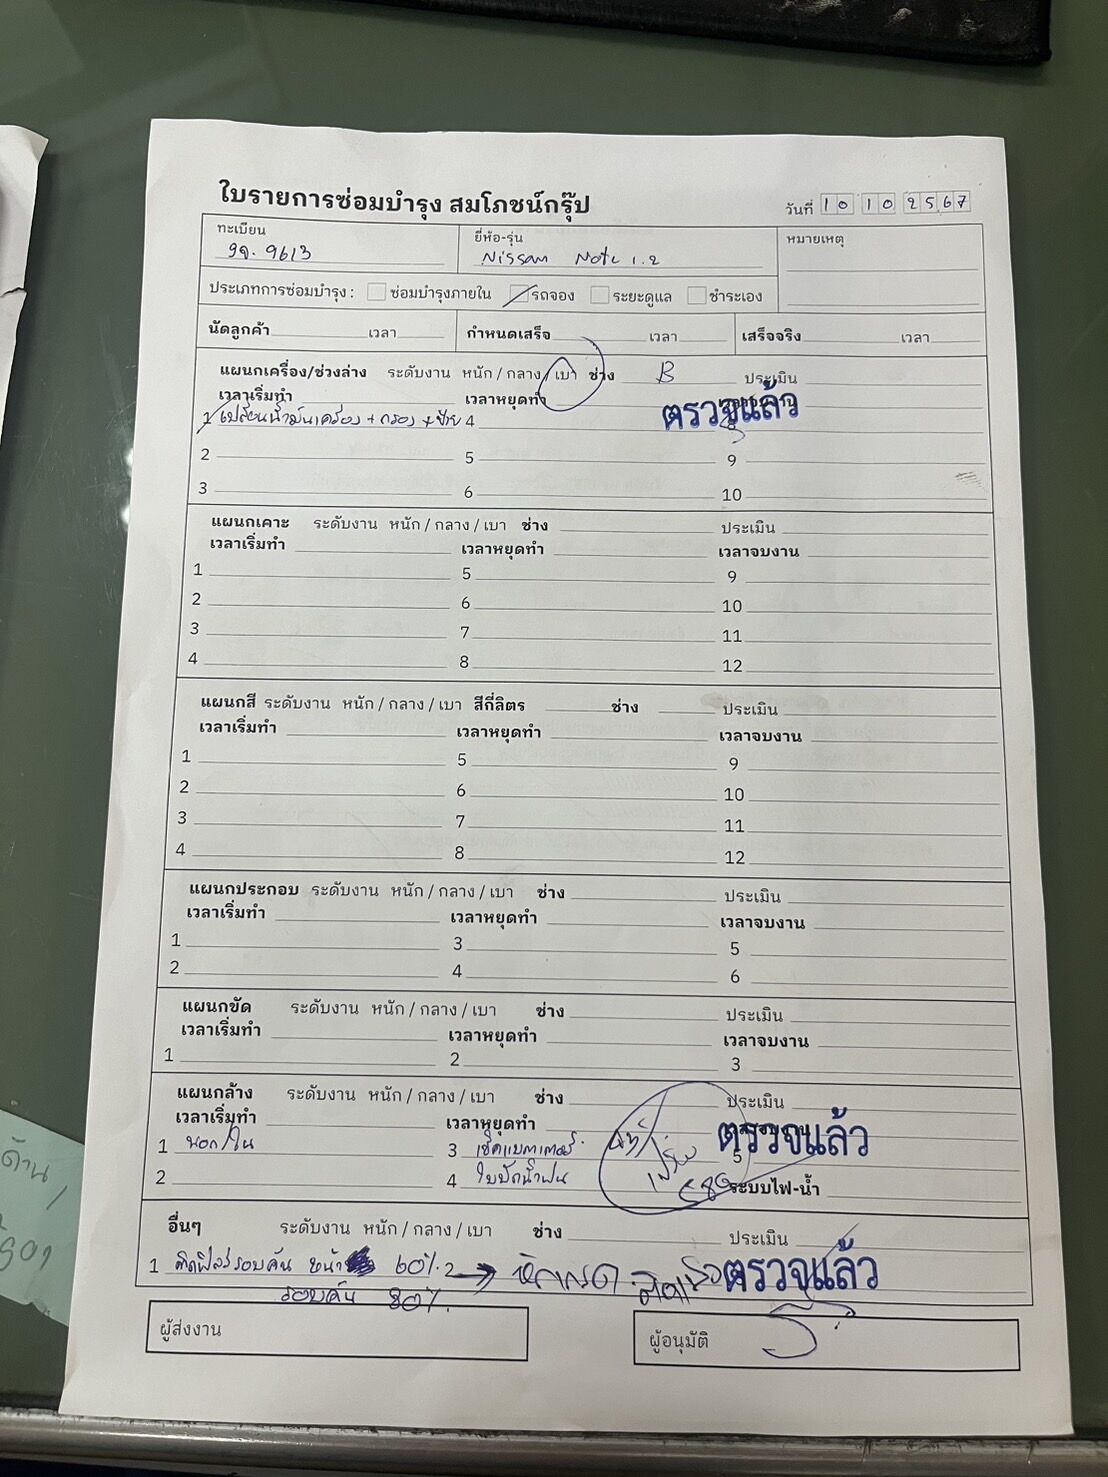 ใบรายการซ่อมบำรุง สมโภชน์กรุ๊ป
วันที่ 10 10 2567
ทะเบียน
9613
ยี่ห้อ-รุ่น
Nissan Note 1.2
หมายเหตุ
ประเภทการซ่อมบำรุง : ซ่อมบำรุงภายใน รถจอง ระยะดูแล ชำระเอง
นัดลูกค้า เวลา กำหนดเสร็จ เวลา เสร็จจริง เวลา
แผนกเครื่อง/ช่วงล่าง ระดับงาน หนัก / กลาง / เบา ช่าง B ประเมิน
เวลาเริ่มทำ เวลาหยุดทำ เวลาจบงาน
ตรวจแล้ว
1 เปลี่ยนน้ำมันเครื่อง + กรอง + ป้าย 4
2 5 9
3 6 10
แผนกเคาะ ระดับงาน หนัก / กลาง / เบา ช่าง ประเมิน
เวลาเริ่มทำ เวลาหยุดทำ เวลาจบงาน
1 5 9
2 6 10
3 7 11
4 8 12
แผนกสี ระดับงาน หนัก / กลาง / เบา สีกี่ลิตร ช่าง ประเมิน
เวลาเริ่มทำ เวลาหยุดทำ เวลาจบงาน
1 5 9
2 6 10
3 7 11
4 8 12
แผนกประกอบ ระดับงาน หนัก / กลาง / เบา ช่าง ประเมิน
เวลาเริ่มทำ เวลาหยุดทำ เวลาจบงาน
1 3 5
2 4 6
แผนกขัด ระดับงาน หนัก / กลาง / เบา ช่าง ประเมิน
เวลาเริ่มทำ เวลาหยุดทำ เวลาจบงาน
1 2 3
แผนกล้าง ระดับงาน หนัก / กลาง / เบา ช่าง ประเมิน
เวลาเริ่มทำ เวลาหยุดทำ
ตรวจแล้ว
1 นอก/ใน 3 เช็คแบตเตอรี่ 5
2 4 ใบปัดน้ำฝน ระบบไฟ-น้ำ
อื่นๆ ระดับงาน หนัก / กลาง / เบา ช่าง ประเมิน
1 ติดฟิล์มรอบคัน หน้า 60% 2
ตรวจแล้ว
รอบคัน 80%
ผู้ส่งงาน
ผู้อนุมัติ